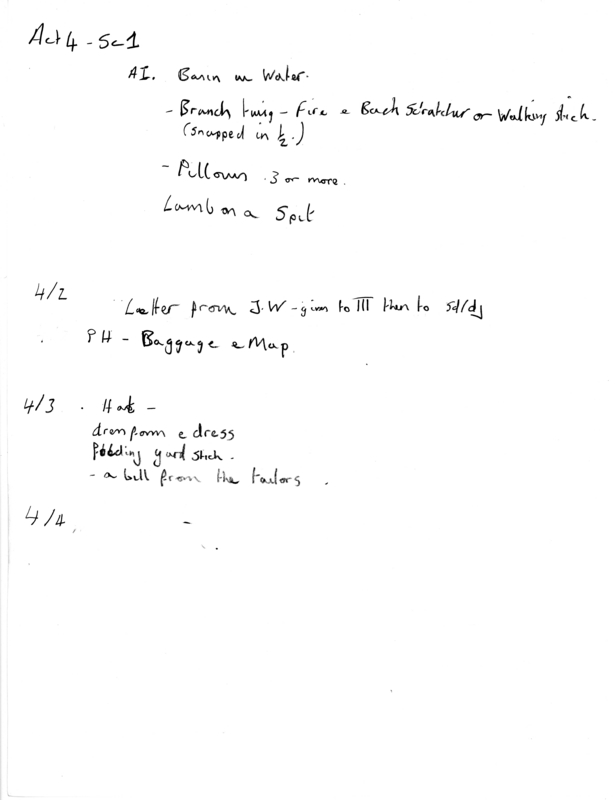 Act 4 - Sc1
AI. Basin w Water.
- Branch twig - Fire e Back Scratcher or Walking stick.
(snapped in ½.)
- Pillows .3 or more.
Lamb on a Spit
4/2
Letter from J.W - given to III then to Sd/dj
PH - Baggage e Map.
4/3 . Hat -
dress form e dress
yard stick.
- a bill from the tailors .
4/4 -